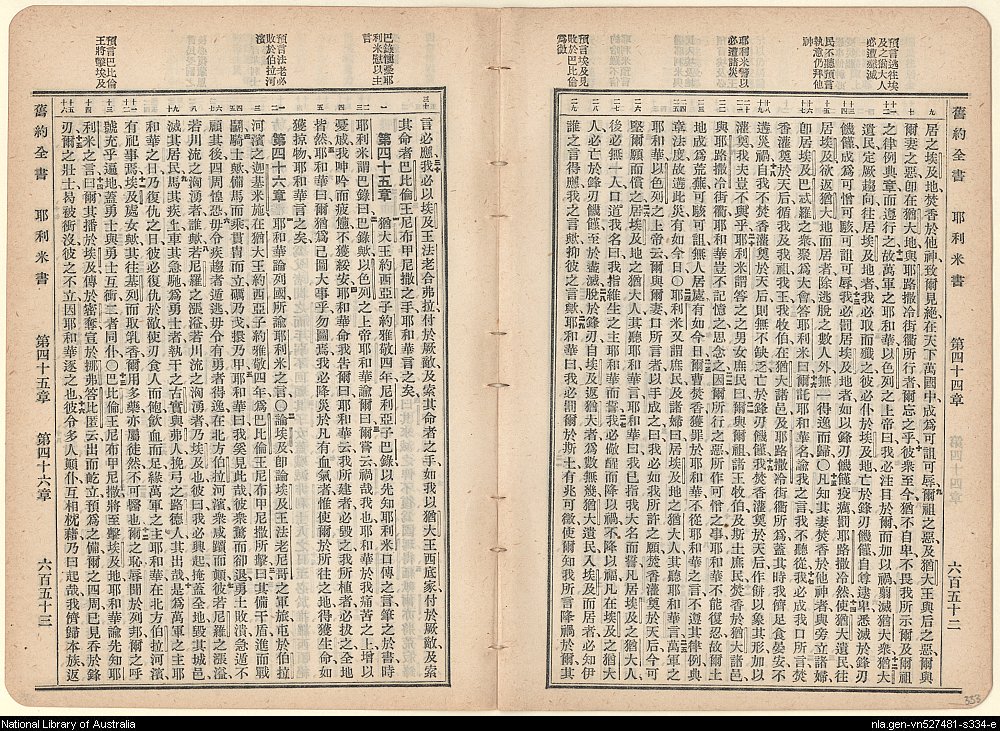 預言逃往埃
及之猶大人
必遭殲滅
民不聽預言
執意仍拜他
神
耶利米警以
必遭諸災
預言埃及見
敗於巴比倫
為徵
舊約全書 耶利米書 第四十四章 六百五十二
居之埃及地焚香於他神致爾見絕在天下萬國中成為可詛可辱爾祖之惡及猶大王與后之惡爾與
爾妻之惡卽在猶大地與耶路撒冷街衢所行者爾忘之乎彼衆至今猶不自卑不畏我所示爾及爾祖
之律例典章而遵行之故萬軍之主耶和華以色列之上帝曰我必注目於爾而加以禍翦滅猶大衆猶大
遺民定厥趨向往居埃及地者我必取而殲之彼必仆於埃及地亡於鋒刃饑饉自尊逮卑悉滅於鋒刃
饑饉成為可憎可駭可詛可辱我必罰居埃及地者如以鋒刃饑饉疫癘罰耶路撒冷然使猶大遺民往
居埃及欲返猶大地而居者除逃脫之數人外無一得逸而歸〇凡知其妻焚香於他神者與旁立諸婦
卽居埃及巴忒羅之衆聚為大會答耶利米曰爾託耶和華名論我之言我不聽從我必成我口所言焚
香灌奠於天后循我及我祖我王我牧伯在猶大諸邑及耶路撒冷街衢所為蓋其時我儕足食晏安不
遘災禍自我不焚香灌奠於天后則無不缺乏亡於鋒刃饑饉我焚香灌奠於天后作餅以象其形加以
灌奠我夫豈不與乎耶利米謂答之之男女庶民曰爾與爾祖諸王牧伯及斯土庶民焚香於猶大諸邑
耶路撒冷街衢耶和華豈不記憶之思念之因爾所行之惡所作可憎之事耶和華不能復忍故爾土
地成為荒蕪可駭可詛無人居處有如今日爾曹焚香獲罪於耶和華不從耶和華之言不遵其律例典
章法度故遘此災有如今日〇耶利米又謂庶民及諸婦曰居埃及地之猶大人其聽耶和華言萬軍之
耶和華以色列之上帝云爾與爾妻口所言者以手成之曰我必如我所許之願焚香灌奠於天后今可
堅爾願而償之居埃及地之猶大人其聽耶和華言耶和華曰我指我大名而誓凡居埃及之猶大人
後必無一人口道我名曰我指維生之主耶和華而誓我必儆醒而降以禍不降以福凡在埃及之猶大
人必亡於鋒刃饑饉至於盡滅脫於鋒刃自埃及返猶大者為數無幾猶大遺民入埃及而居者必知伊
誰之言得應我之言歟抑彼之言歟耶和華曰我必罰爾於斯土有兆可徵使爾知我所言降禍於爾其
預言法老必
敗於伯拉河
濱
巴錄憾憂耶
利米慰以主
言
預言巴比倫
王將擊埃及
言必應我必以埃及王法老合弗拉付於厥敵及索其命者之手如我以猶大王西底家付於厥敵及索
其命者巴比倫王尼布甲尼撒之手耶和華言之矣
第四十五章 猶大王約西亞子約雅敬四年尼利亞子巴錄以先知耶利米口傳之言筆之於書時
耶利米謂巴錄曰巴錄歟以色列之上帝耶和華論爾曰爾嘗云禍哉我也耶和華於我痛苦之上增以
憂戚我呻吟而疲憊不獲綏安耶和華命我告爾曰耶和華云我所建者必毀之我所植者必拔之全地
皆然耶和華曰爾猶為己圖大事乎勿圖焉我必降災於凡有血氣者惟使爾於所往之地得獲生命如
獲掠物耶和華言之矣
第四十六章 耶和華論列國所諭耶利米之言〇論埃及卽論埃及王法老尼哥之軍旅屯於伯拉
河濱之迦基米施在猶大王約西亞子約雅敬四年為巴比倫王尼布甲尼撒所擊曰其備干盾進而戰
鬭騎士歟備馬而乘貫冑而立礪乃戈擐乃甲耶和華曰我奚見此哉彼衆驚而卻退勇士敗潰急遁不
顧其後四周惶恐毋令疾趨者遁逃毋令有勇者得逸在北方伯拉河濱衆咸躓而顛彼若尼羅之漲溢
若川流之洶湧者誰歟若尼羅之漲溢若川流之洶湧者乃埃及也彼曰我必興起掩蓋全地毀其城邑
滅其居民馬其疾上車其急馳為勇士者執干之古實與弗人挽弓之路德人其出哉是為萬軍之主耶
和華之日乃復仇之日彼必復仇於敵使刃食人而飽飲血而足緣萬軍之主耶和華在北方伯拉河濱
有祀事焉埃及處女歟其往基列而取乳香爾用多藥亦屬徒然不可醫也爾之恥辱聞於列邦爾之呼
號充乎遍地蓋勇士與勇士互衝二者同仆〇巴比倫王尼布甲尼撒將至擊埃及地耶和華諭先知耶
利米之言曰爾其播於埃及傳於密奪宣於挪弗答比匿云出而屹立預為之備爾之四周已見吞於鋒
刃爾之壯士曷被衝沒彼之不立因耶和華逐之也彼令多人顛仆互相枕藉乃曰起哉我儕歸本族返
舊約全書 耶利米書 第四十五章 第四十六章 六百五十三
353
National Library of Australia
nla.gen-vn527481-s334-e